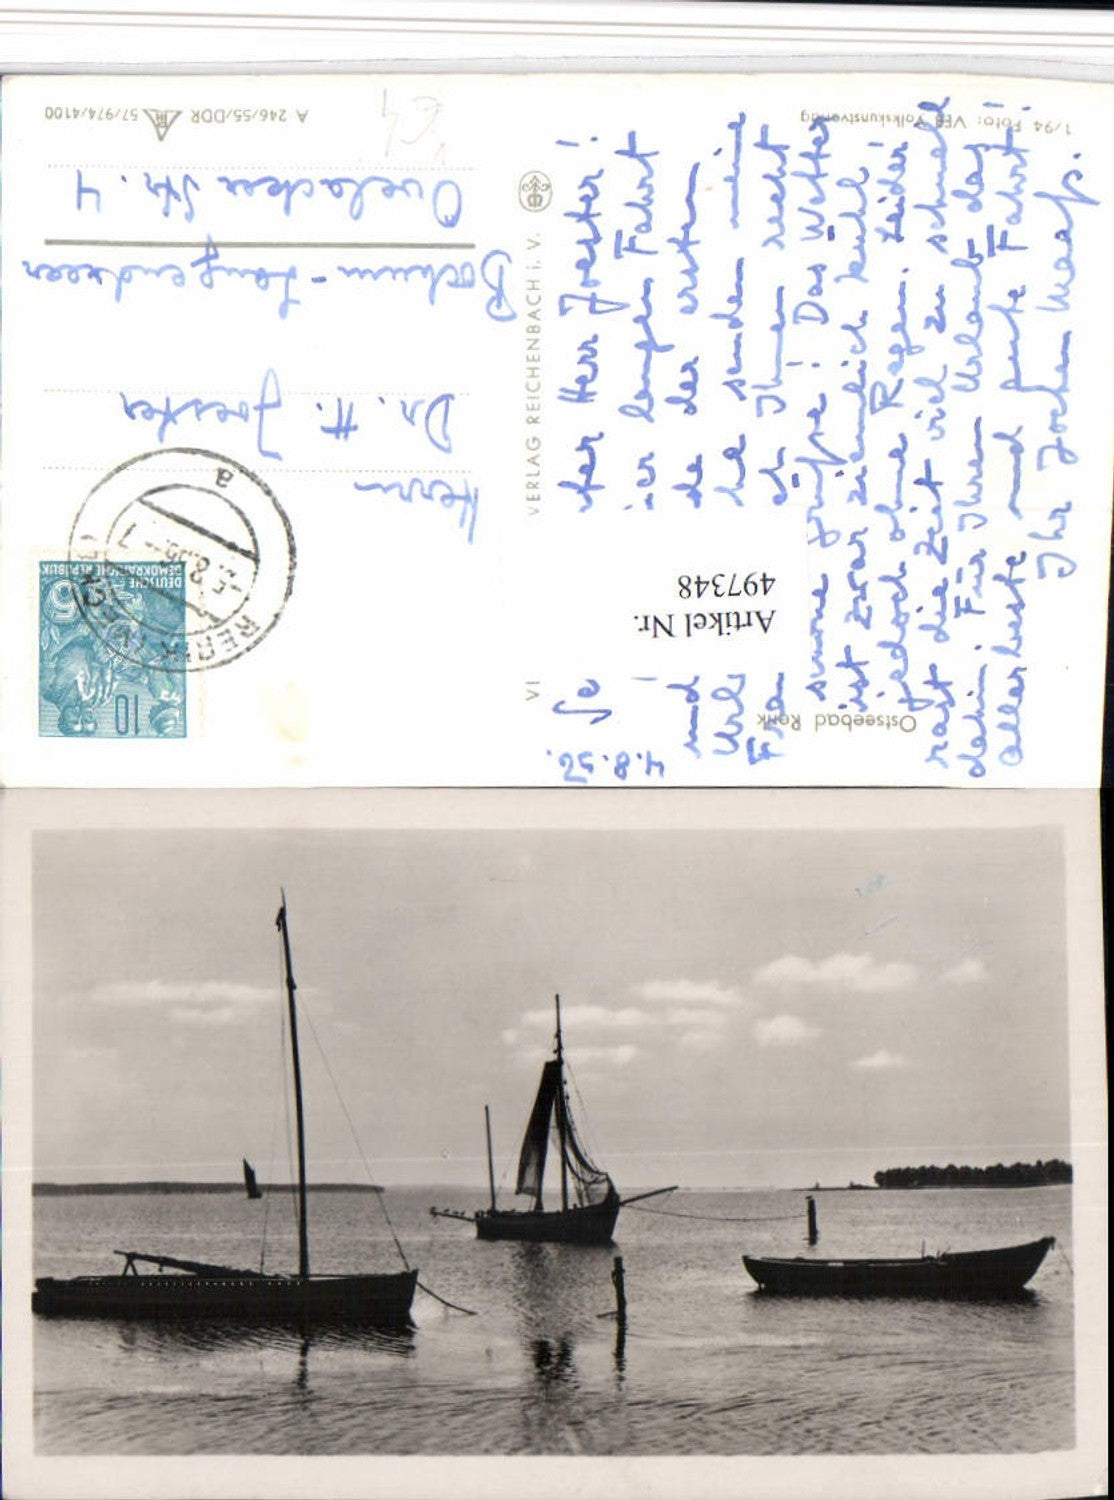 Ostseebad Rerik
1/94 Foto: VEB Volkskunstverlag
VI VERLAG REICHENBACH i. V.
A 246/55/DDR 57/974/4100
Artikel Nr.
497348
10
5
DEUTSCHE
DEMOKRATISCHE REPUBLIK
RERIK
a
4.8.56.
Se ter Herr Joester!
langen Fahrt
und der ersten
Url be senden meine
Frau Ihnen recht
Grüße! Das Wetter
ist zwar ziemlich kühl
jedoch ohne Regen. Leider
rast die Zeit viel zu schnell
dahin. Für Ihren Urlaub das
allerbeste und gute Fahrt!
Ihr Jochen
Herrn
Dr. H. Joester
Bochum-Langendreer
Ovelacker Str. 4